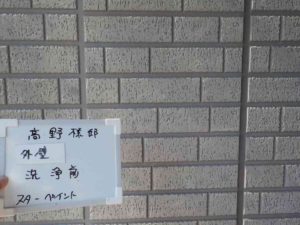 高野様邸
外壁
洗浄前
スターペイント